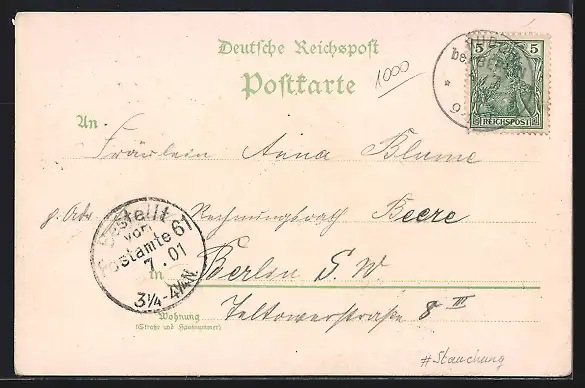 Deutsche Reichspost
Postkarte
1000
5 5
REICHSPOST
An
Fräulein Anna Blume
p. Adr. Rechnungsrath Beere
Bestellt
vom
Postamte 61
7. 01
3¼-4¼N.
in Berlin S. W
Wohnung
(Straße und Hausnummer)
Teltowerstraße 8 III
#Stauchung